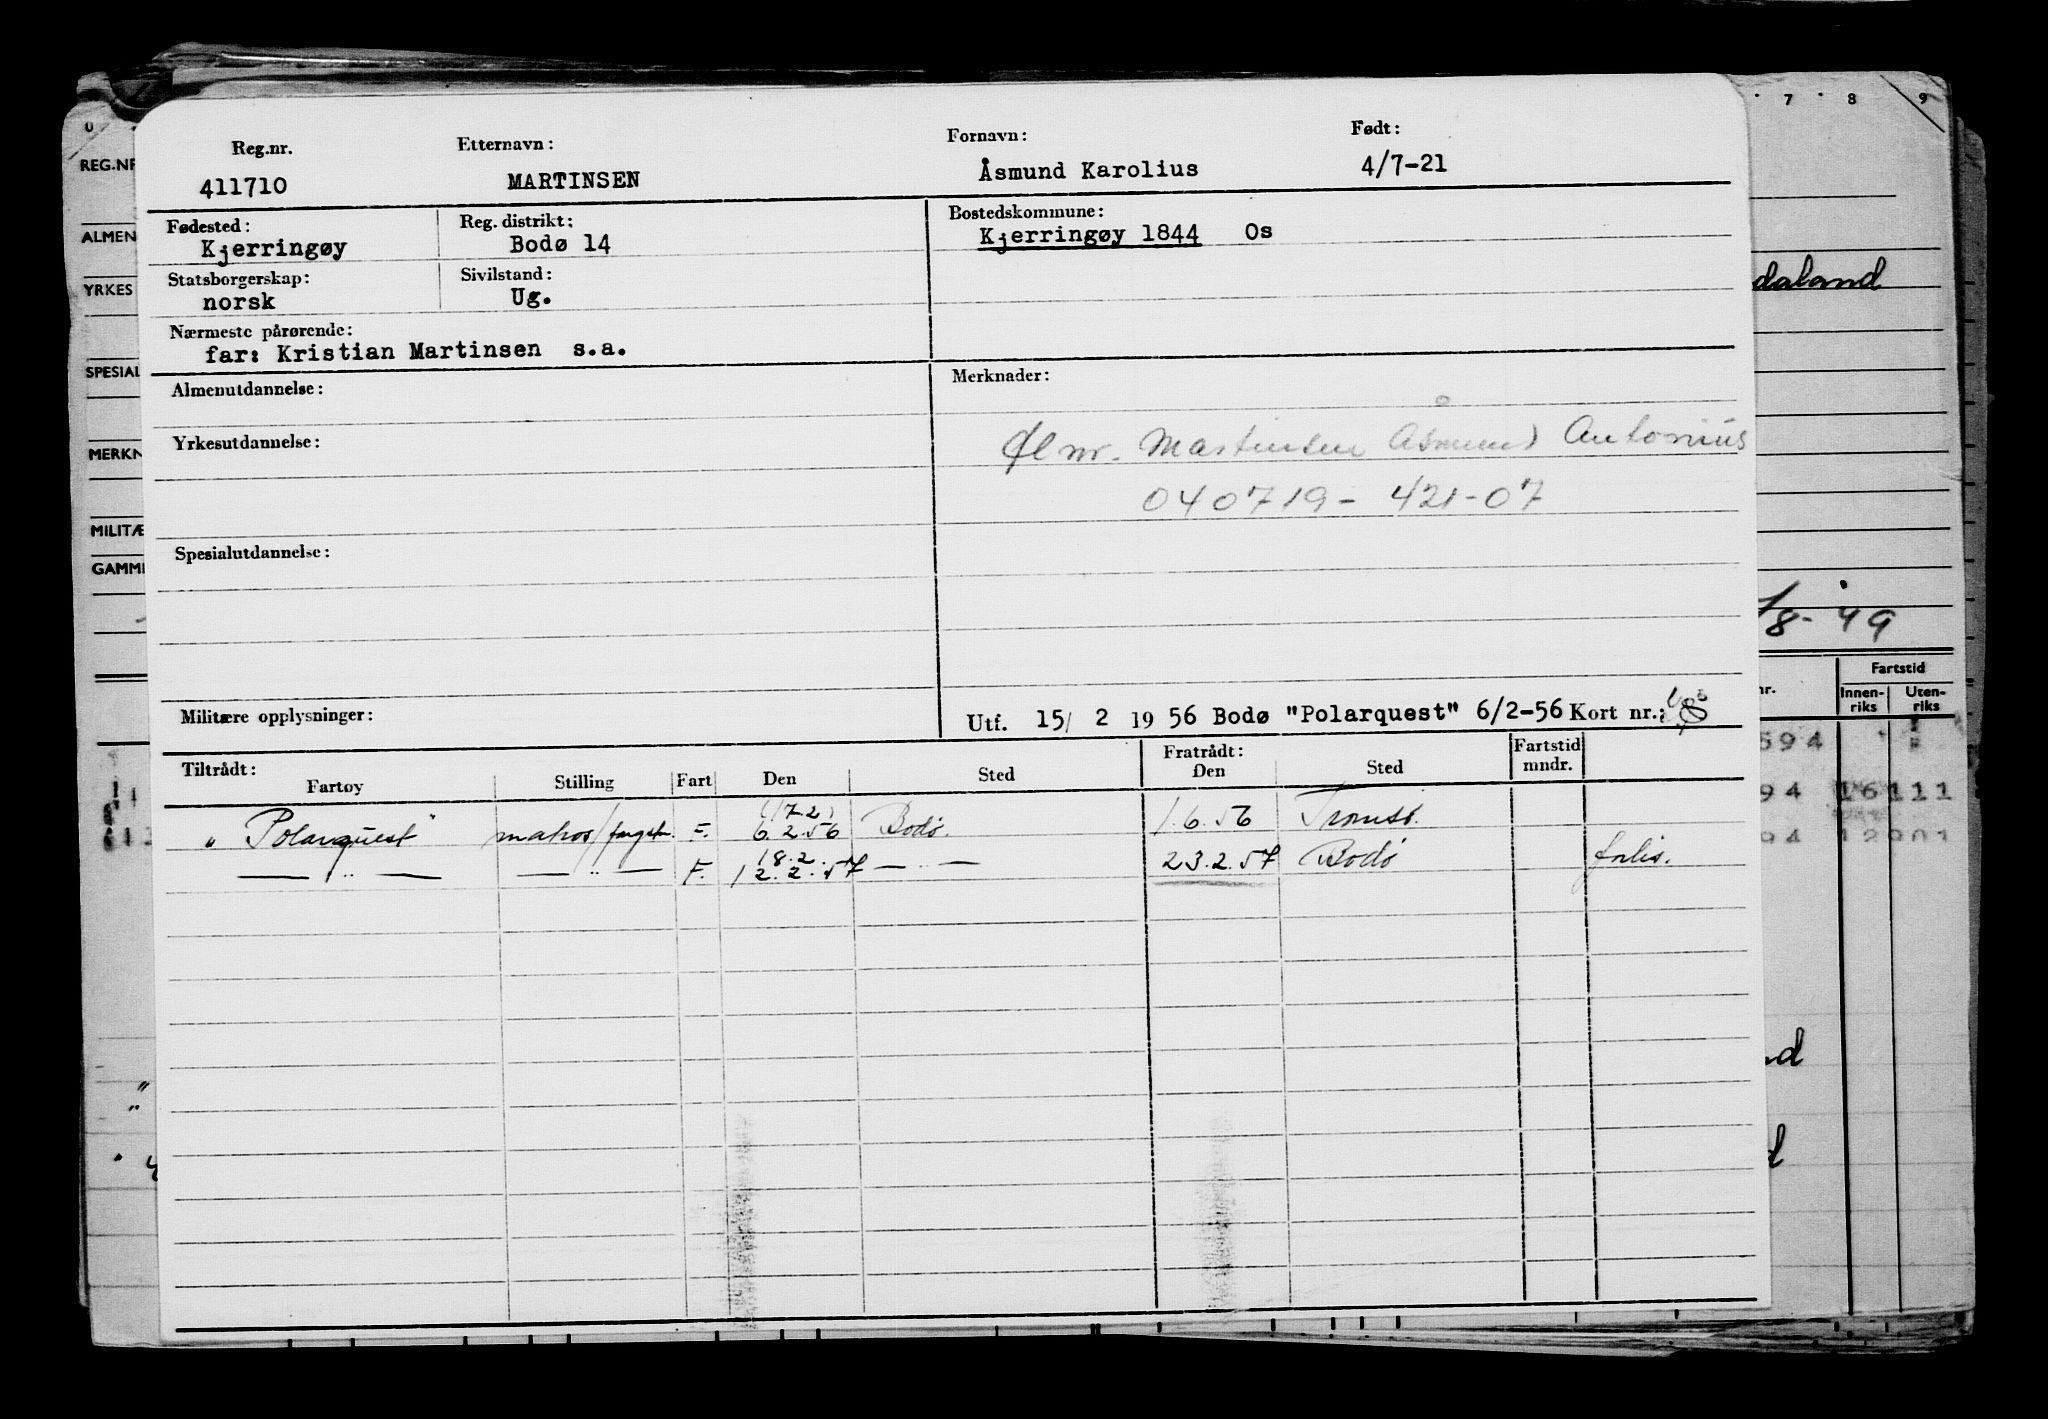 Reg.nr. Etternavn: Fornavn: Født:
411710 MARTINSEN Åsmund Karolius 4/7-21
Fødested: Reg. distrikt: Bostedskommune:
Kjerringøy Bodø 14 Kjerringøy 1844 Os
Statsborgerskap: Sivilstand:
norsk Ug.
Nærmeste pårørende:
far: Kristian Martinsen s.a.
Almenutdannelse: Merknader:
Yrkesutdannelse: Martinsen Åsmund Antonius
040719- 421-07
Spesialutdannelse:
Militære opplysninger: Utf. 15/ 2 19 56 Bodø "Polarquest" 6/2-56 Kort nr.:
Tiltrådt: Fratrådt: Fartstid
Fartøy Stilling Fart Den Sted Den Sted mndr.
(17.2)
" Polarquest " matros/fangstm. F. 6.2.56 Bodø 1.6.56 Tromsø.
18.2.
— " — — " — F. 12.2.57 — " — 23.2.57 Bodø forlis.
0 7 8 9
REG.NR
ALMEN
YRKES daland
SPESIAL
MERKN
MILITÆ
GAMME
/8-49
Fartstid
nr. Innen-riks Uten-riks
594
94 16 111
94 12 901